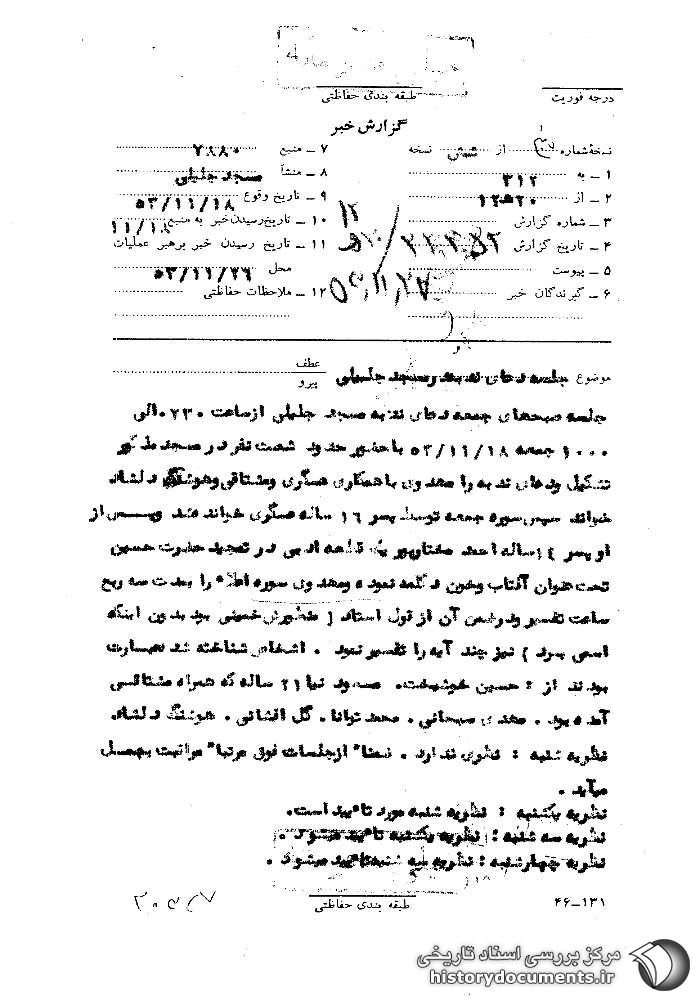 طبقه بندی حفاظتی
درجه فوریت
گزارش خبر
نسخهٔ شماره از شش نسخه
۱ ـ به ۳۱۲
۲ ـ از ۱۲ ه‍ ۲۰
۳ ـ شماره گزارش
۴ ـ تاریخ گزارش
۵ ـ پیوست
۶ ـ گیرندگان خبر
۷ ـ منبع ۲۸۸۰
۸ ـ منشأ مسجد جلیلی
۹ ـ تاریخ وقوع ۵۳/۱۱/۱۸
۱۰ ـ تاریخ رسیدن خبر به منبع ۱۱/۱۸
۱۱ ـ تاریخ رسیدن خبر برهبر عملیات
محل ۵۳/۱۱/۲۶
۱۲ ـ ملاحظات حفاظتی
۵۳/۱۱/۲۷
موضوع جلسه دعای ندبه در مسجد جلیلی
عطف
پیرو
جلسه صبحهای جمعه دعای ندبه مسجد جلیلی از ساعت ۰۷۳۰ الی
۱۰۰۰ جمعه ۵۳/۱۱/۱۸ با حضور حدود شصت نفر در مسجد مذکور
تشکیل و دعای ندبه را مهدوی با همکاری عسگری و مشتاقی و هوشنگ دلشاد
خواند سپس سوره جمعه توسط پسر ۱۶ ساله عسگری خوانده شد و پس از
او پسر ۱۴ ساله احمد مختارپور یک قطعه ادبی در تمجید حضرت حسین
تحت عنوان آفتاب وخون دکلمه نمود ومهدوی سوره اعلاء را بمدت سه ربع
ساعت تفسیر ودرضمن آن از قول استاد ( منظورش خمینی بود بدون اینکه
اسمی ببرد ) نیز چند آیه را تفسیر نمود . اشخاص شناخته شده عبارت
بودند از : حسین خوشبخت. مسعود نیا ۲۱ ساله که همراه مشتاقی
آمده بود . مهدی سبحانی . محمد توانا . گل افشانی . هوشنگ دلشاد
نظریه شنبه : نظری ندارد . ضمنا" ازجلسات فوق مرتبا" مراقبت بعمل
میآید .
نظریه یکشنبه : نظریه شنبه مورد تائید است.
نظریه سه شنبه : نظریه یکشنبه تائید میشود .
نظریه چهارشنبه : نظریه سه شنبه تائید میشود .
طبقه بندی حفاظتی
۴۶-۱۳۱
مرکز بررسی اسناد تاریخی
historydocuments.ir